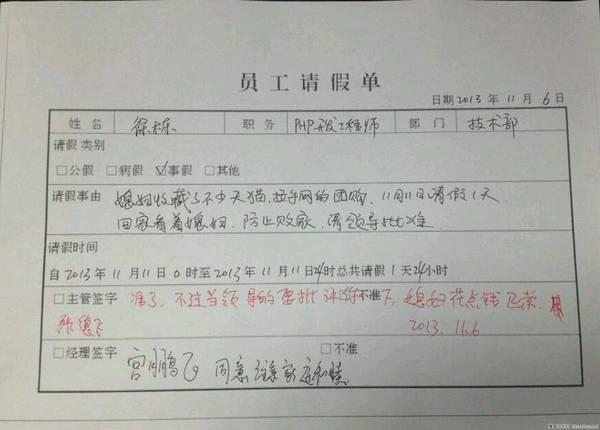 员工请假单
日期2013 年 11 月 6 日
姓名 徐栋 职务 PHP开发工程师 部门 技术部
请假类别
□公假 □病假 ☑事假 □其他
请假事由 媳妇收藏了不少天猫、拉手网的团购,11月11日请假1天
回家看着媳妇,防止败家,请领导批准
请假时间
自2013年11月11日0时至2013年11月11日24时总共请假1天24小时
□主管签字 准了,不过当领导的要批评 □不准 下,媳妇花点钱正常,
2013.11.6
□经理签字 □不准
宫鹏飞 同意 家庭和睦